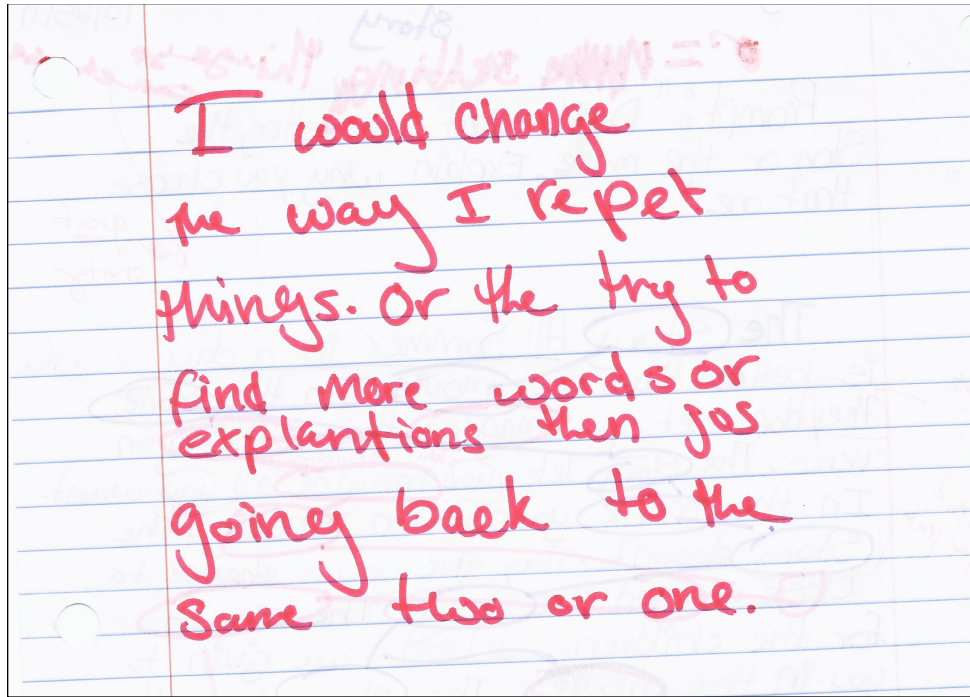 I would change
the way I repet
things. Or the try to
find more words or
explantions then jus
going back to the
same two or one.